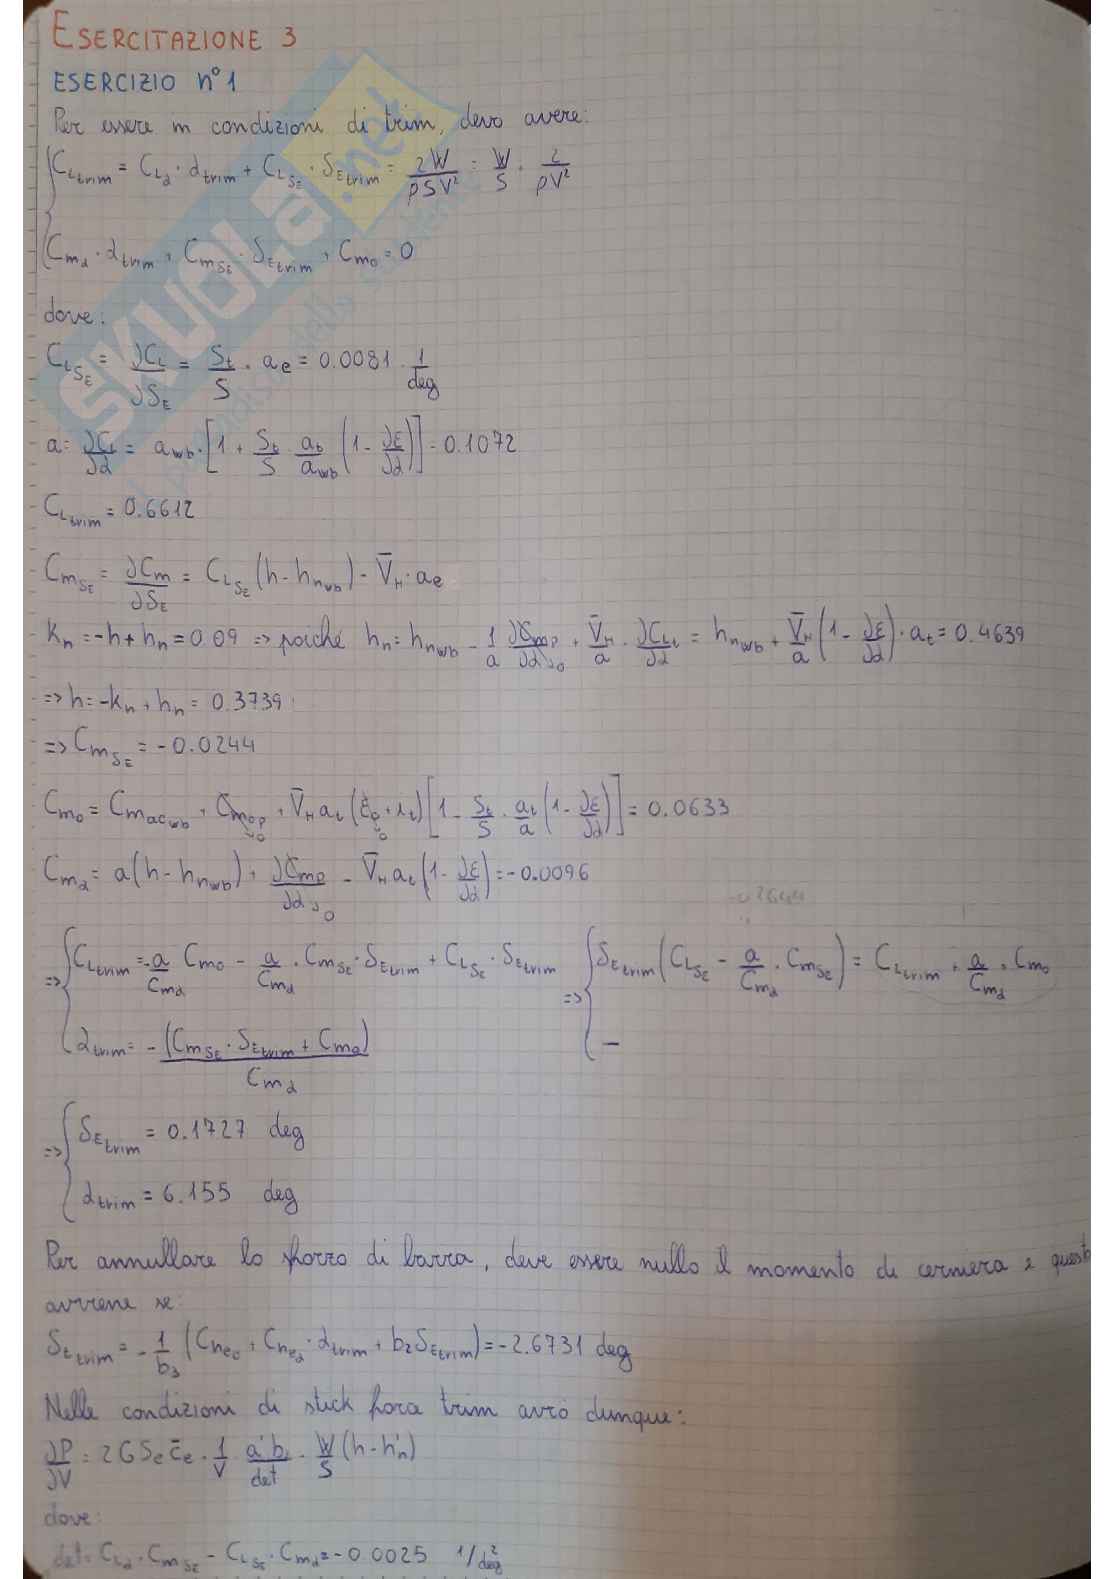 ESERCITAZIONE 3
ESERCIZIO n°1
Per essere in condizioni di trim, devo avere:
C_Ltrim = C_Lα · α_trim + C_LδE · δ_Etrim = 2W/(ρSV²) = W/S · 2/(ρV²)
C_mα · α_trim + C_mδE · δ_Etrim + C_m0 = 0
dove:
C_LδE = ∂C_L/∂δ_E = S_t/S · a_e = 0.0081 1/deg
a = ∂C_L/∂α = a_wb · [1 + S_t/S a_t/a_wb (1 - ∂ε/∂α)] = 0.1072
C_Ltrim = 0.6612
C_mδE = ∂C_m/∂δ_E = C_LδE (h - h_nwb) - V̄_H · a_e
K_n = -h + h_n = 0.09 => poiché h_n = h_nwb - 1/a ∂C_mp/∂α ↘0 + V̄_H/a · ∂C_Lt/∂α = h_nwb + V̄_H/a (1 - ∂ε/∂α) · a_t = 0.4639
=> h = -K_n + h_n = 0.3739
=> C_mδE = -0.0244
C_m0 = C_macwb + C_m0p ↘0 + V̄_H a_t (ε_0 ↘0 + i_t) [1 - S_t/S · a_t/a (1 - ∂ε/∂α)] = 0.0633
C_mα = a(h - h_nwb) + ∂C_mp/∂α ↘0 - V̄_H a_t (1 - ∂ε/∂α) = -0.0096
=> { C_Ltrim = -a/C_mα C_m0 - a/C_mα · C_mδE · δ_Etrim + C_LδE · δ_Etrim => { δ_Etrim (C_LδE - a/C_mα · C_mδE) = C_Ltrim + a/C_mα · C_m0
α_trim = -(C_mδE · δ_Etrim + C_m0)/C_mα —
=> { δ_Etrim = 0.1727 deg
α_trim = 6.155 deg
Per annullare lo sforzo di barra, deve essere nullo il momento di cerniera e questo
avviene se:
δ_t trim = -1/b_3 (C_he0 + C_heα · α_trim + b_2 δ_Etrim) = -2.6731 deg
Nelle condizioni di stick force trim avrò dunque:
∂P/∂V = 2 G S_e c̄_e · 1/V · a'b_2/det · W/S (h - h'_n)
dove:
det = C_Lα · C_mδE - C_LδE · C_mα = -0.0025 1/deg²